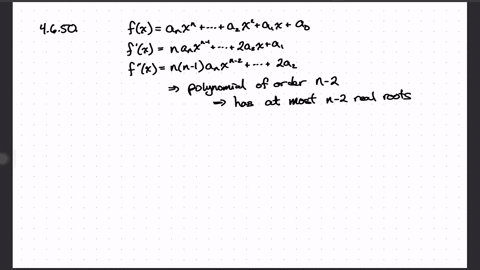 4.6.50. f(x) = aₙxⁿ + ⋯ + a₂x² + a₁x + a₀
f'(x) = n aₙxⁿ⁻¹ + ⋯ + 2a₂x + a₁
f"(x) = n(n-1)aₙxⁿ⁻² + ⋯ + 2a₂
⇒ polynomial of order n-2
→ has at most n-2 real roots